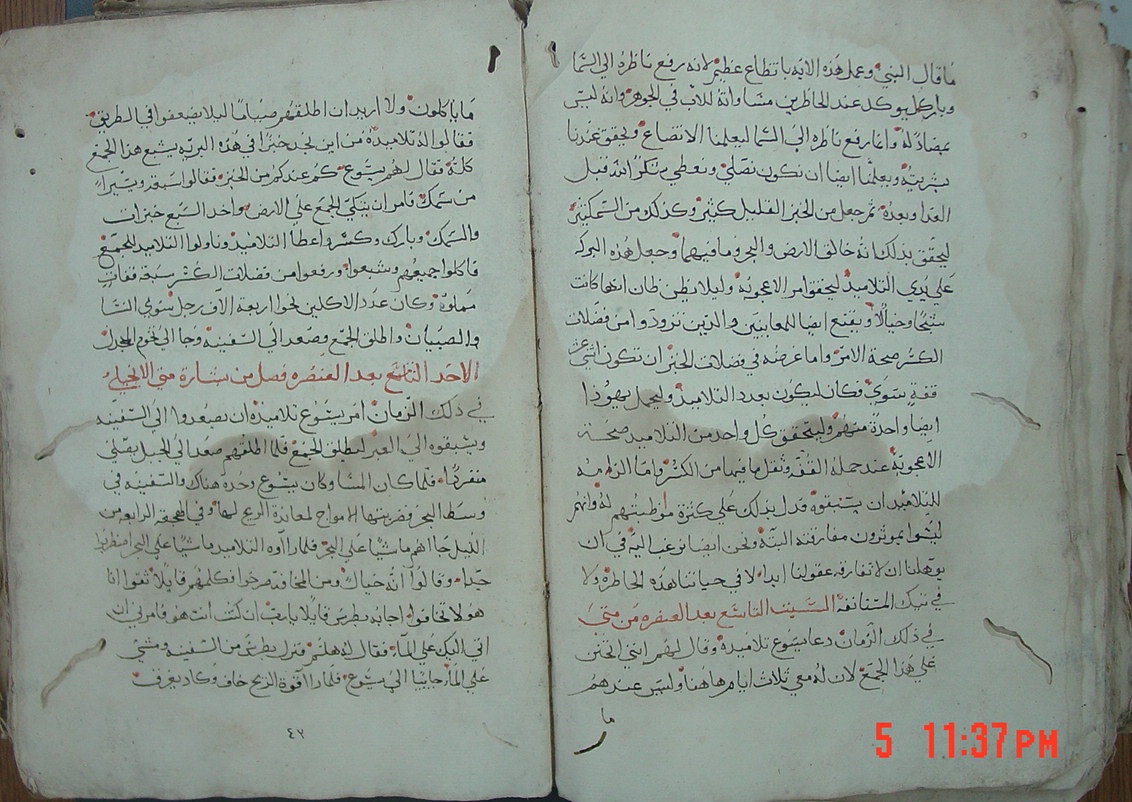 ما قال النبي وعمل هذه الايه باتطاع عظيم لانه رفع ناظره الي السما
وبارك ليوكد عند الحاظرين مساواته للاب في الجوهر وانه ليس
بمضاد له وانما رفع ناظره الي السما ليعلمنا الاتضاع ويحقق عندنا
بشريته ويعلمنا ايضا ان نكون نصلي ونعطي شكرا لله قبل
الغدا وبعده ثم جعل من الخبز القليل كثير وكذلك من السمك كثير
ليحقق بذلك انه خالق الارض والبحر وما فيهما وجعل هذه البركه
علي يدي التلاميد ليحقق امر الاعجوبه وليلا يظن ظان انها كانت
شبحا وخيالا ويقنع ايضا للمعاينين والدين تزودوا من فضلات
الكسر صحة الامر واما غرضه في فضلات الخبز ان تكون اثني عشر
قفة سوي وكان ليكون بعدد التلاميد وليحمل يهودا
ايضا واحدة منهم وليتحقق كل واحد من التلاميد صحة
الاعجوبة عند حمله القفه وثقل ما فيها من الكسر واما الزامه
للتلاميد ان يسبقوه قدل بذلك علي كثرة موظبتهم له وانهم
ليسوا يوثرون مفارقته البتة ونحن ايضا نرغب اليه في ان
يوهلنا ان لا تفارقه عقولنا ابدا لا في حياتنا هذه الحاظره ولا
في تيك المستانفه السبت التاسع بعد العنصره من متي
في ذلك الزمان دعا يسوع تلاميذه وقال لهم انني اتحنن
علي هذا الجمع لان له معي ثلاث ايام هاهنا وليس عندهم
ما
ما ياكلون ولا اريد ان اطلقهم صياما ليلا يضعفوا في الطريق
فقالوا له تلاميذه من اين نجد خبزا في هذه البريه يشبع هذا الجمع
كله فقال لهم يسوع كم عندكم من الخبز فقالوا سبعه ويسيرا
من سمك فامر ان يتكي الجمع علي الارض واخد السبع خبزات
والسمك وبارك وكسر واعطا التلاميذ وناولوا التلاميد للجمع
فاكلوا جميعهم وشبعوا ورفعوا من فضلات الكسر سبعة قفاف
مملوة وكان عدد الاكلين نحوا اربعة الاف رجل سوي النسا
والصبيان واطلق الجمع وصعد الي السفينه وجا الي تخوم المجدل
الاحد التاسع بعد العنصره فصل من بشارة متي الانجيلي
في ذلك الزمان امر يسوع تلاميذه ان يصعدوا الي السفينه
ويسبقوه الي العبر ليطلق الجمع فلما اطلقهم صعد الي الجبل يصلي
منفردا فلما كان المسا وكان يسوع وحده هناك والسفينه في
وسط البحر تضربتها الامواج لمعاندة الريح لها وفي الهجعة الرابعه من
الليل جا اهم ماشيا علي البحر فلما راوه التلاميد ماشيا علي البحر اضطربوا
جدا وقالوا انه خيال ومن المخافة صرخوا فكلمهم قايلا ثقوا انا
هو لا تخافوا اجابه بطرس قايلا يا رب ان كنت انت هو فامرني ان
اتي اليك علي الما فقال له هلم فنزل بطرس من السفينه ومشي
علي الما جاييا الي يسوع فلما راا قوة الريح خاف وكاد يغرق
٤٢
5 11:37 PM